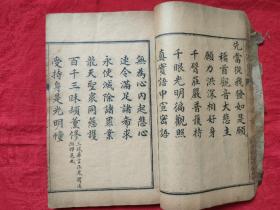 先當從我發如是願
稽首觀音大悲主
願力洪深相好身
千臂莊嚴普護持
千眼光明徧觀照
真實語中宣密語
無為心內起悲心
速令滿足諸希求
永使滅除諸罪業
龍天聖眾同慈護
百千三昧頓薰修
受持身是光明幢